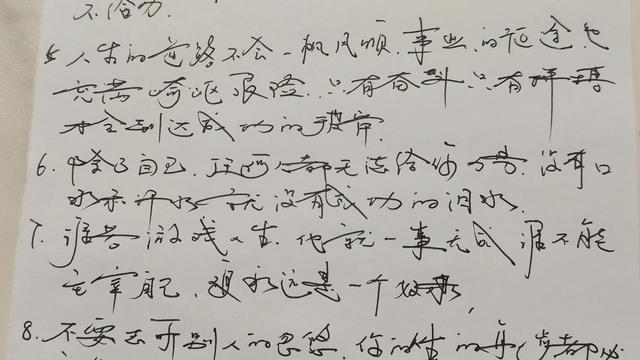 不给力.
5. 人生的道路不会一帆风顺.事业的征途也
充满崎岖艰险.只有奋斗只有拼搏
才会到达成功的彼岸.
6. 除了自己.任何人都无法给你力量.没有口
水和汗水就没有成功的泪水.
7. 谁若游戏人生.他就一事无成谁不能
主宰自己.永远是一个奴隶,
8. 不要去听别人的忽悠.你人生的每一步都必